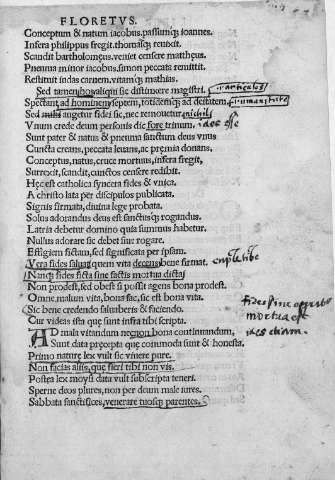 FLORETVS.
Conceptum & natum iacobus, passumq; ioannes.
Infera philippus fregit. thomasq; reuixit.
Scandit bartholomęus. veniet censere mattheus.
Pneuma minor iacobus. simon peccata remittit.
Restituit iudas carnem. vitamq; mathias.
Sed tamen aliqui sic distinxere magistri. articulos
Spectant ad hominem septem, totidemq; ad deitatem. humanitate
Sed nulli augetur fides sic, nec remouetur. nichil
Vnum crede deum personis dic fore trinum. idest esse
Sunt pater & natus & pneuma sanctum deus vnus
Cuncta creans, peccata leuans, ac pręmia donans.
Conceptus, natus, cruce mortuus, infera fregit,
Surrexit, scandit, cuinctos censere redibit.
Hęc est catholica syncera fides & vnica.
A christo lata per discipulos publicata.
Signis firmata, diuina lege probata.
Solus adorandus deus est sanctusq; rogandus.
Latria debetur domino quia summus habetur.
Nullus adorare sic debet siue rogare.
Effigiem fictam, sed significata per ipsam.
Vera fides saluat quem vita decens bene firmat.
Nanq; fides ficta sine factis mortua dicta
Non prodest, sed obest si possit agens bona prodest.
Omne malum vita, bona fac, sic est bona vita.
Sic bene credendo saluaberis & faciendo.
Cur videas ista quę sunt infra tibi scripta.
fides sine operibus
mortua est
AD mala vitandum necnon bona continuandum,
Sunt data pręcepta quę commoda sunt & honesta.
Primo naturę lex vult sic viuere pure.
Non facias aliis, quę fieri tibi non vis.
Postea lex moysi data vult subscripta teneri.
Sperne deos plures, non per deum male iures.
Sabbata sanctifices, venerare tuosq; parentes.